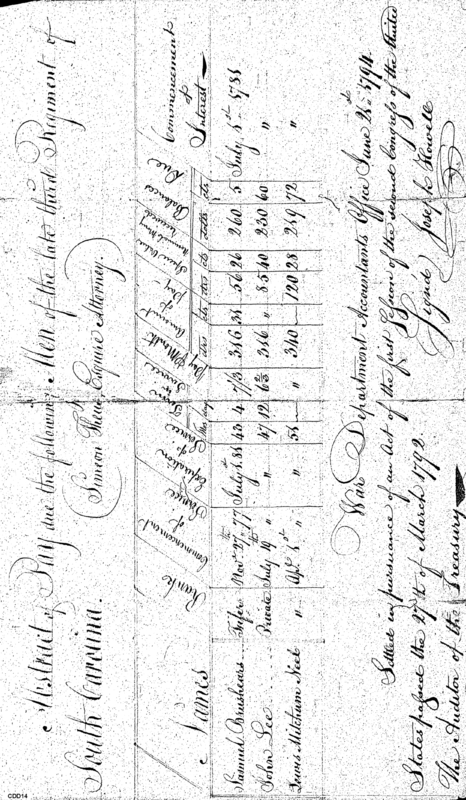 Abstract of Pay due the following Men of the late third Regiment of
South Carolina.
Simeon Theus Esquire Attorney.
Names
Ranks
Commencement of Service
Expiration of Service
Term of Service
Mos. days
Pay pr Month
Amount of Pay
dlrs cts
Specie Value
dlrs cts
Balances Due
dolls cts
Commencement of Interest
Samuel Brashears Fifer Novr 27th 77 July 5th 81 43 4 7 1/3 316 31 56 26 260 5 July 5th 1781
John Lee Private July 19th " " 47 12 6 2/3 316 " 85 40 230 60 "
Lewis Mitchum Neel " Apl. " 51 " 340 120 28 219 72 "
War Department Accountants Office June 25th 1794.
Settled in pursuance of an Act of the first Session of the second Congress of the United
States passed the 27th of March 1792
Signd Joseph Howell
The Auditor of the Treasury
CDD14